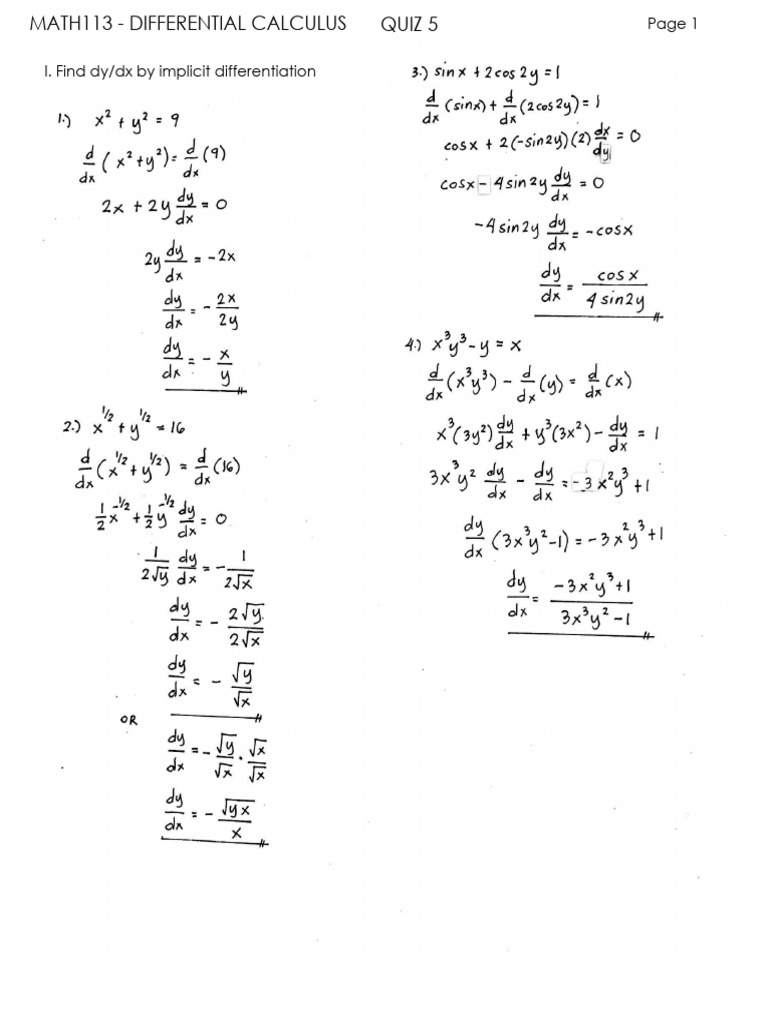 MATH113 - DIFFERENTIAL CALCULUS QUIZ 5 Page 1
I. Find dy/dx by implicit differentiation
1.) x² + y² = 9
d/dx (x² + y²) = d/dx (9)
2x + 2y dy/dx = 0
2y dy/dx = -2x
dy/dx = - 2x/2y
dy/dx = - x/y
2.) x^1/2 + y^1/2 = 16
d/dx (x^1/2 + y^1/2) = d/dx (16)
1/2 x^-1/2 + 1/2 y^-1/2 dy/dx = 0
1/2√y dy/dx = - 1/2√x
dy/dx = - 2√y/2√x
dy/dx = - √y/√x
OR
dy/dx = - √y/√x · √x/√x
dy/dx = - √yx/x
3.) sinx + 2cos2y = 1
d/dx (sinx) + d/dx (2cos2y) = 1
cosx + 2(-sin2y)(2) dx/dy = 0
cosx - 4sin2y dy/dx = 0
-4sin2y dy/dx = -cosx
dy/dx = cosx/4sin2y
4.) x³y³ - y = x
d/dx (x³y³) - d/dx (y) = d/dx (x)
x³(3y²) dy/dx + y³(3x²) - dy/dx = 1
3x³y² dy/dx - dy/dx = -3x²y³ + 1
dy/dx (3x³y² - 1) = -3x²y³ + 1
dy/dx = -3x²y³ + 1/3x³y² - 1